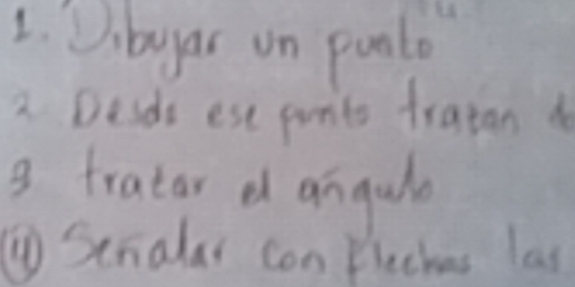 1. Dibujar un punto
2 Desde ese punto trazan
3 trazar el angulo
④ Señalar con flechas las